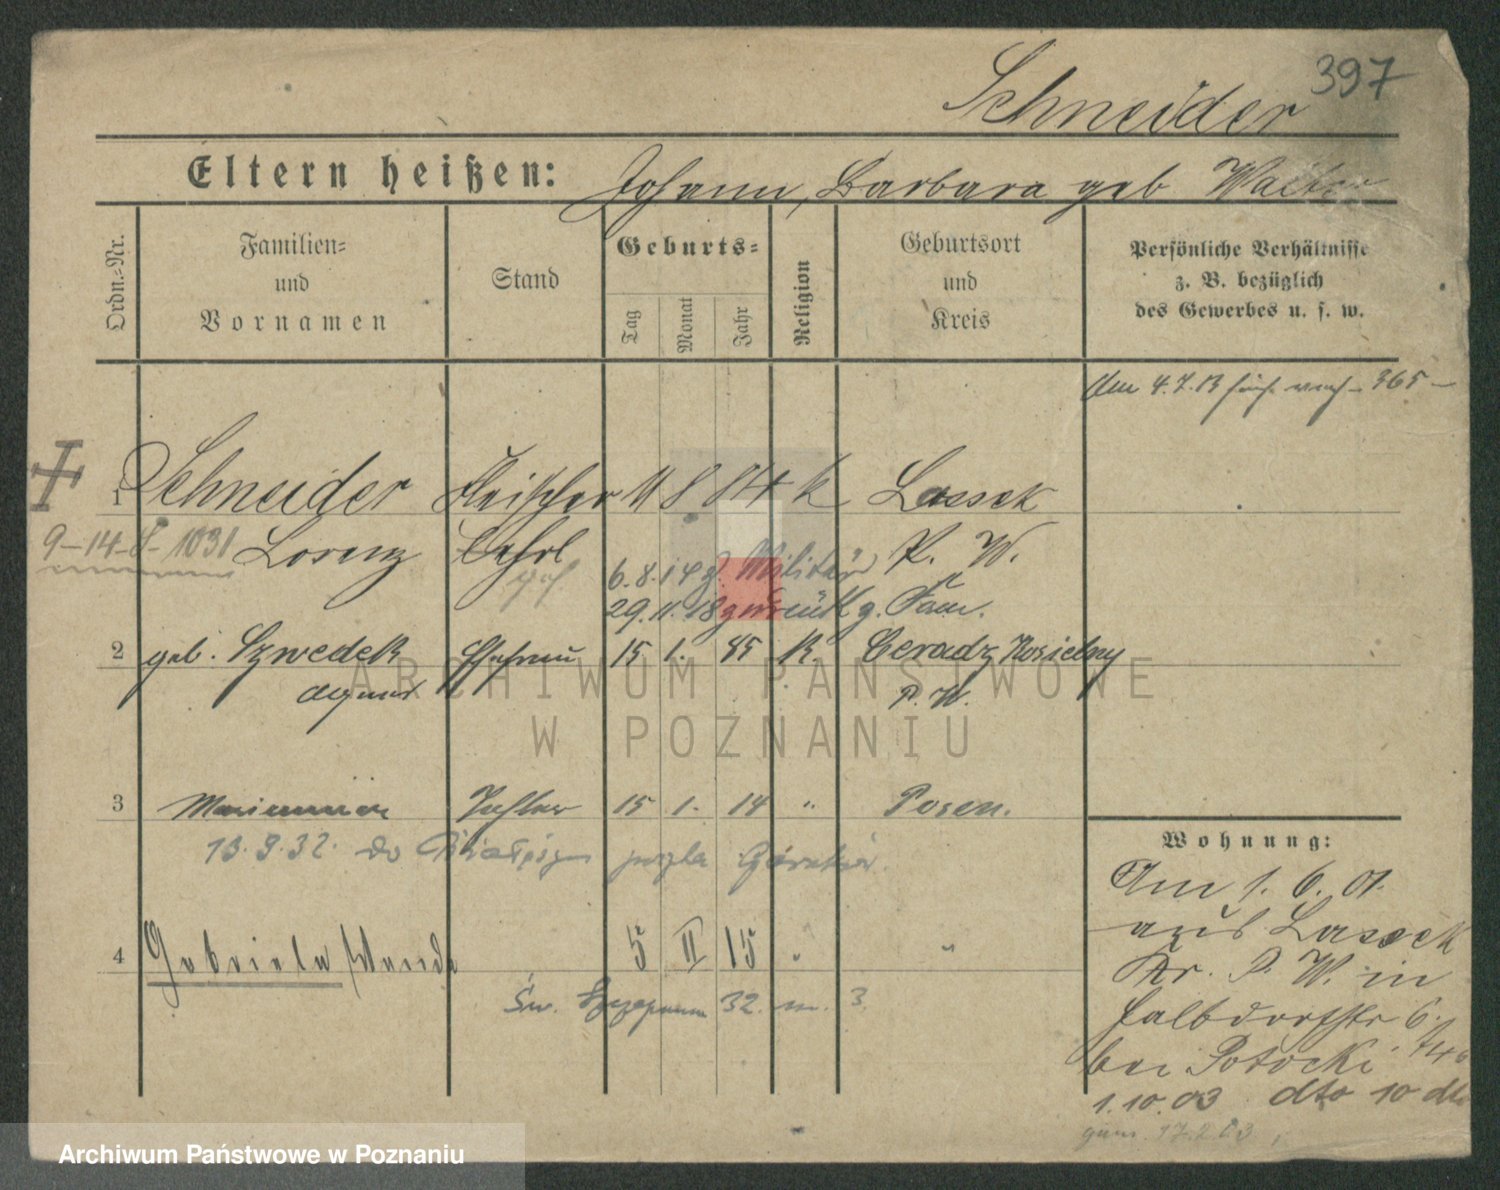 397
Schneider
Eltern heißen: Johann, Barbara geb Walter
Ordn.-Nr.
Familien-
und
Vornamen
Stand
Geburts-
Tag
Monat
Jahr
Religion
Geburtsort
und
Kreis
Persönliche Verhältnisse
z. B. bezüglich
des Gewerbes u. s. w.
Am 4.7.13 365
1 Schneider Fleischer 11 8 84 k Lassek
9-14-8-1031 Lorenz P. W.
6.8.14 z. Militär
29.11.18 zurück z. Fam.
2 geb. Szwedek Ehefrau 15 1. 85 K. Ceradz Kosielny
Agnes P. W.
3 Marianna Tochter 15 1. 14 " Posen.
13.9.32. do
4 Gabriela Wanda 5 II 15 " "
Św. 32. m. 3.
Wohnung:
Am 1. 6. 01.
aus Lassek
Kr. P. W. in
Halbdorfstr 6.
bei Potocki
1.10.03 dto 10 dto
17.2.03
ARCHIWUM PAŃSTWOWE
W POZNANIU
Archiwum Państwowe w Poznaniu